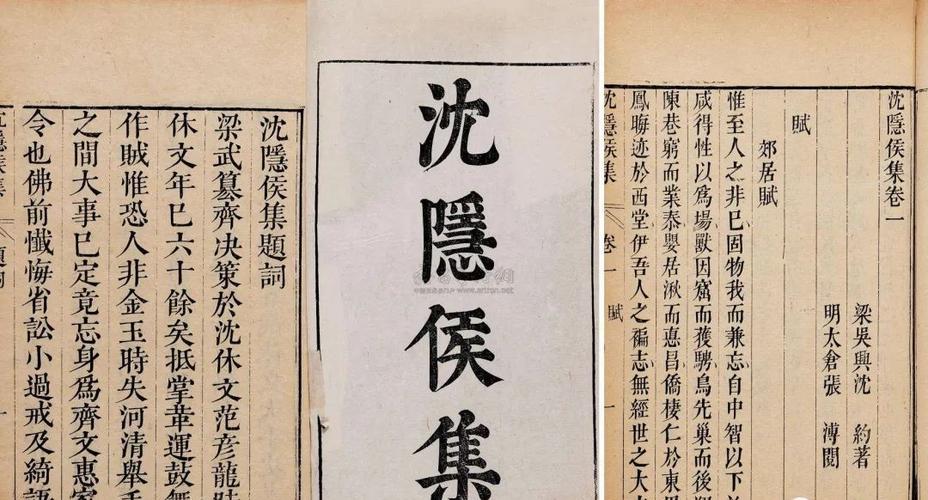 沈隱侯集題詞
梁武簒齊决策於沈休文范彦龍時
休文年已六十餘矣抵掌革運鼓
作賊惟恐人非金玉時失河清舉
之間大事已定竟忘身爲齊文惠家
令也佛前懺悔省訟小過戒及綺語
沈隱侯集 題詞 一
沈隱侯集
沈隱侯集卷一
梁吳興沈 約著
明太倉張 溥閱
賦
郊居賦
惟至人之非已固物我而兼忘自中智以下
咸得性以爲塲獸因窟而獲騁鳥先巢而後
陳巷窮而業泰嬰居湫而惠昌僑棲仁於東里
鳳晦迹於西堂伊吾人之褊志無經世之大
沈隱侯集 卷一 賦 一